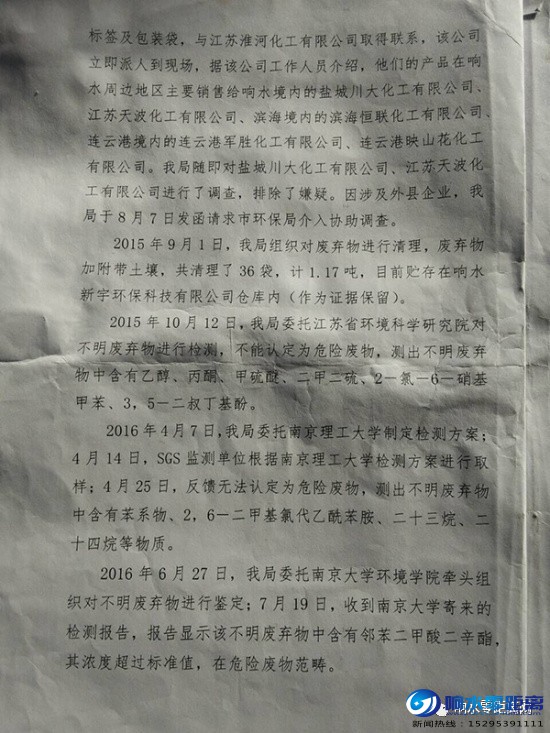 标签及包装袋，与江苏淮河化工有限公司取得联系，该公司
立即派人到现场，据该公司工作人员介绍，他们的产品在响
水周边地区主要销售给响水境内的盐城川大化工有限公司、
江苏天波化工有限公司、滨海境内的滨海恒联化工有限公司、
连云港境内的连云港军胜化工有限公司、连云港映山花化工
有限公司。我局随即对盐城川大化工有限公司、江苏天波化
工有限公司进行了调查，排除了嫌疑。因涉及外县企业，我
局于8月7日发函请求市环保局介入协助调查。
2015年9月1日，我局组织对废弃物进行清理，废弃物
加附带土壤，共清理了36袋，计1.17吨，目前贮存在响水
新宇环保科技有限公司仓库内（作为证据保留）。
2015年10月12日，我局委托江苏省环境科学研究院对
不明废弃物进行检测，不能认定为危险废物，测出不明废弃
物中含有乙醇、丙酮、甲硫醚、二甲二硫、2－氯－6－硝基
甲苯、3，5－二叔丁基酚。
2016年4月7日，我局委托南京理工大学制定检测方案；
4月14日，SGS监测单位根据南京理工大学检测方案进行取
样；4月25日，反馈无法认定为危险废物，测出不明废弃物
中含有苯系物、2，6－二甲基氯代乙酰苯胺、二十三烷、二
十四烷等物质。
2016年6月27日，我局委托南京大学环境学院牵头组
织对不明废弃物进行鉴定；7月19日，收到南京大学寄来的
检测报告，报告显示该不明废弃物中含有邻苯二甲酸二辛酯，
其浓度超过标准值，在危险废物范畴。
响水零距离
新闻热线：15295391110